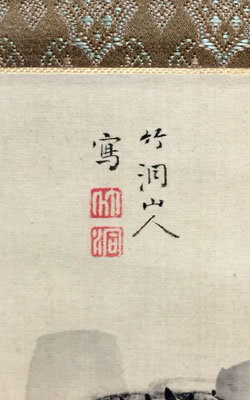 竹洞山人
寫
竹
洞